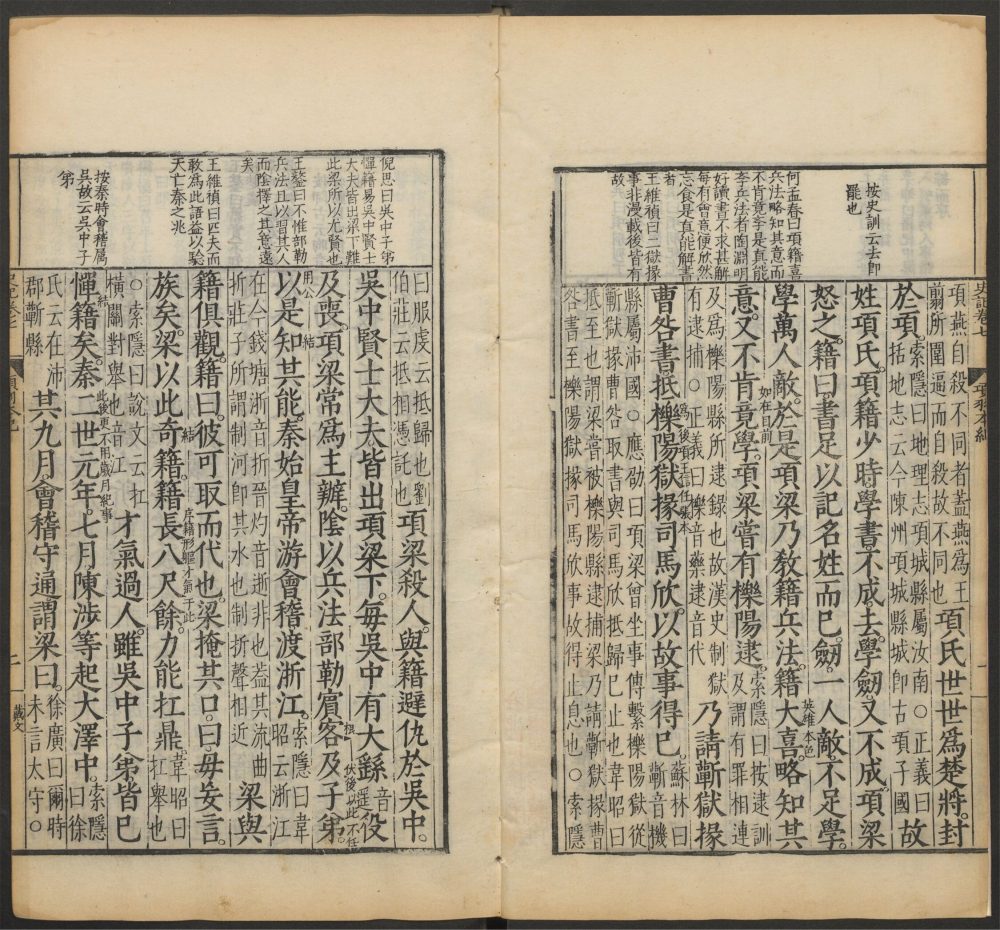 按史訓云去即
罷也
何孟春曰項籍喜
兵法略知其意而
不肯竟學是真能
李兵法者陶淵明
好讀書不求甚解
每有會意便欣然
忘食是直能解書
者
王維楨曰二獄掾
事非漫載後皆有
故
史記卷七 項羽本紀 一
項燕自殺不同者蓋燕為王
翦所圍逼而自殺故不同也 項氏世世爲楚將封
於項 索隱曰地理志項城縣屬汝南○正義曰
括地志云今陳州項城縣城即古項子國 故
姓項氏項籍少時學書不成去學劒又不成項梁
怒之籍曰書足以記名姓而已劒一人敵不足學
學萬人敵 如在目前 於是項梁乃教籍兵法籍大喜 英雄本色 略知其
意又不肯竟學項梁嘗有櫟陽逮 索隱曰按逮訓
及謂有罪相連
及爲櫟陽縣所逮錄也故漢史制獄
有逮捕○正義曰櫟音藥逮音代 乃請蘄獄掾
曹咎書抵櫟陽獄掾司馬欣以故事得已 蘇林曰
蘄音機
縣屬沛國○應劭曰項梁曾坐事傳繫櫟陽獄從
蘄獄掾曹咎取書與司馬欣抵歸已止也韋昭曰
抵至也謂梁嘗被櫟陽縣逮捕梁乃請蘄獄掾曹
咎書至櫟陽獄掾司馬欣事故得止息也○索隱
倪思曰吳中子弟
憚籍易吳中賢士
大夫皆出梁下難
此梁所以尤賢也
王鏊曰不惟部勒
兵法且以習其人
而陰擇之其意遠
矣
王維楨曰匹夫而
敢為此語益以驗
天亡秦之兆
按秦時會稽屬
吳故云吳中子
弟
曰服虔云抵歸也劉
伯莊云抵相憑託也 項梁殺人與籍避仇於吳中
吳中賢士大夫皆出項梁下每吳中有大繇役
及喪項梁常爲主辦陰以兵法部勒賓客及子弟
以是知其能秦始皇帝游會稽渡浙江 索隱曰韋
昭云浙江
在今錢塘浙音折晉灼音逝非也蓋其流曲
折莊子所謂制河即其水也制折聲相近 梁與
籍俱觀籍曰彼可取而代也梁掩其口曰毋妄言
族矣梁以此奇籍 序籍形軀才氣于此 籍長八尺餘力能扛鼎 韋昭曰
扛舉也
○索隱曰說文云扛
橫關對舉也音江 才氣過人雖吳中子弟皆已
憚籍矣 此後更不用歲月紀事 秦二世元年七月陳涉等起大澤中 索隱
曰徐
氏云在沛
郡蘄縣 其九月會稽守通謂梁曰 徐廣曰爾時
未言太守○
二 戴文